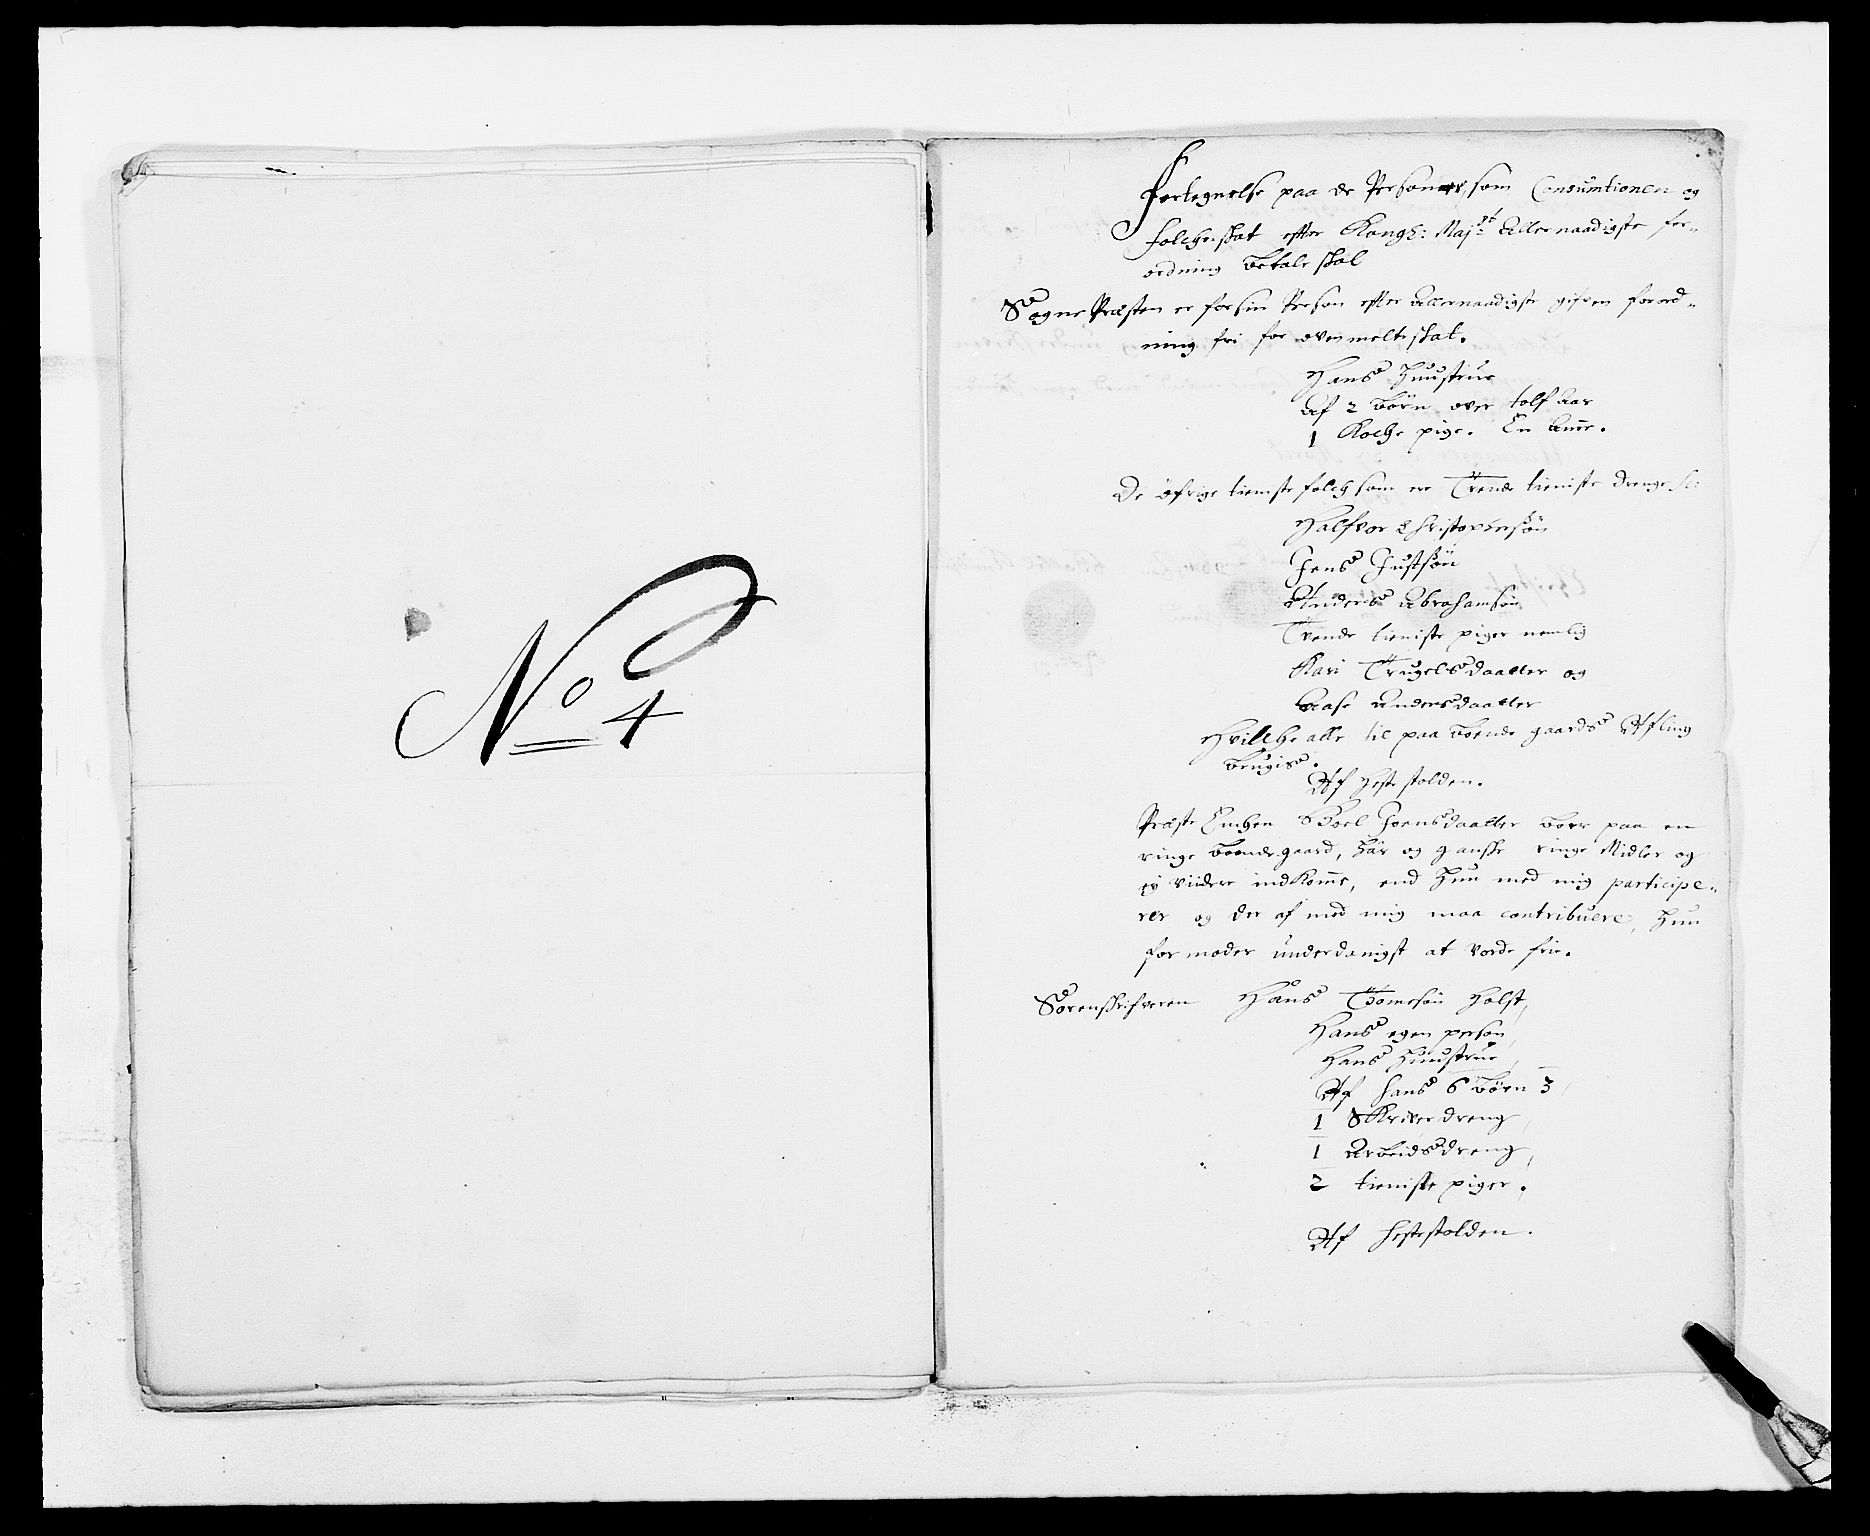 No 4
Fortegnelse paa de Personer, som Consumtionen og
folcheskat effter Kongl: Maj:ts Allernaadigste for-
ordning betale skal
Sogne Præsten er for sin Person effter Allernaadigste gifven forord-
ning fri for ovenmelte skat.
Hans Huustrue
Af 2 børn over tolf Aar
1 Koche pige. En Ame.
De øfrige tieniste folch som ere Trende tieniste drenge
Halfvor Christophersøn
Jens Justsøn
Anders Abrahamsøn
Tvende tieniste piger nemlig
Kari Trugelsdaatter og
Aase Andersdaatter
Hvilche alle til paa boende gaards Afling
brugis.
Af Hesteskolden.
Præste Enchen Boel Joensdaatter boer paa en
ringe bondegaard, har og ganske ringe Midler og
ey viidere indkome, end hun med mig participe-
rer og der af med mig maa contribuere, hun
formoder underdanigst at vorde frie.
Sorenskrifveren Hans Thomesøn Holst,
Hans egen person,
Hans Huustrue,
Af hans 6 børn 3,
1 Skriver dreng,
1 Arbeidsdreng,
2 tieniste piger.
Af hesteskolden.